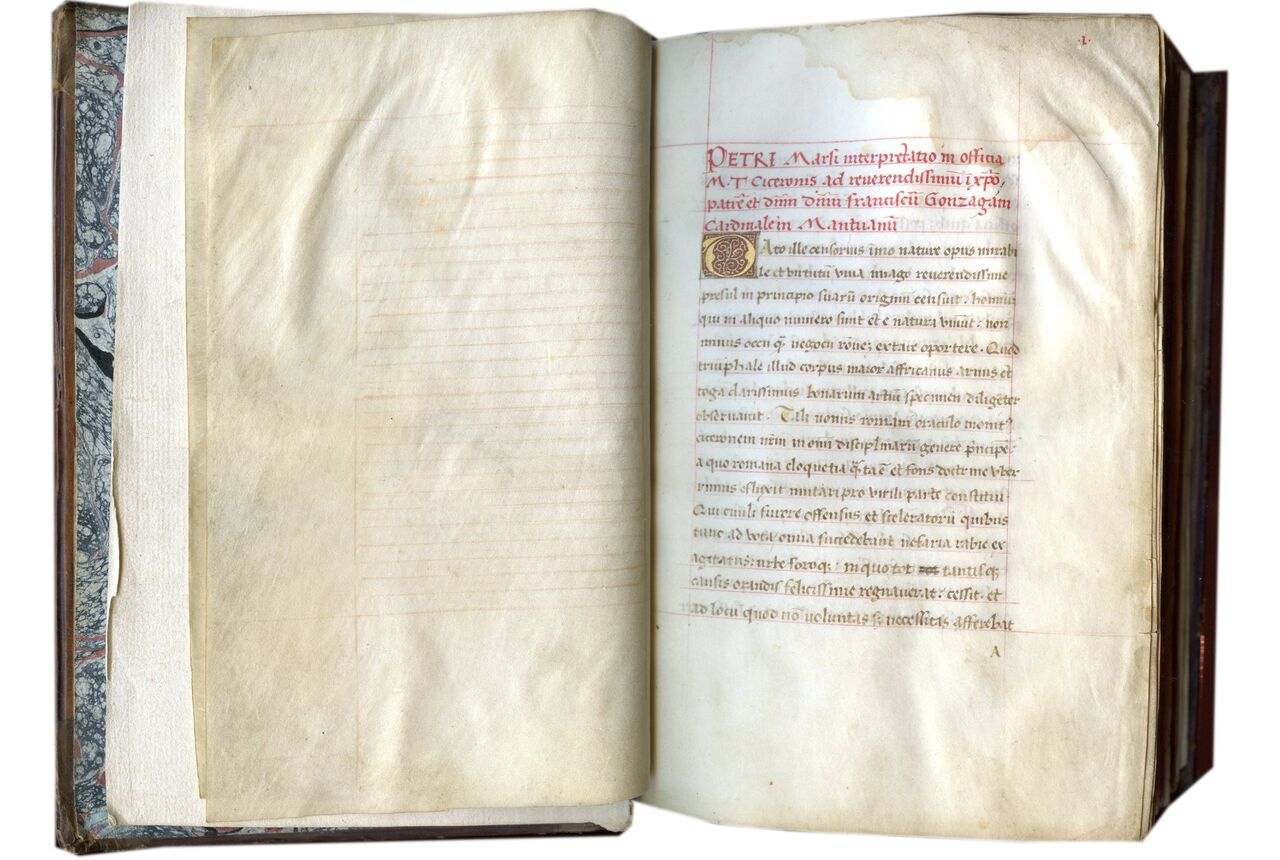 ·1·
PETRI Marsi interpretatio in officia
M·T Ciceronis ad reuerendissimū ī xp̄o
patrē et dn̄m dn̄m franciscū Gonzagam
Cardinalem Mantuanū
CAto ille censorius īmo nature opus mirabi
le et virtutū viua imago reuerendissime
presul in principio suarū originū censuit· hominū
qui in aliquo numero sunt et e natura viuūt· non
minus ocii qꝫ negocii rōneꝫ extare oportere· Quod
triūphale illud corpus maior affricanus armis et
toga clarissimus bonarum artiū specimen diligēter
obseruauit· Tali nomis romani oraculo
ciceronem nr̄m in omi disciplinarū genere p̄ncipē·
a quo romana eloquētia et fons doctrine vber
rimus eflixit imitari pro virili parte constitui·
Qui ciuili furore offensus et sceleratorū quibus
tunc ad vota omia succedebant nefaria rabie ex
agitatus: urbe foroqꝫ in quo tot tantisqꝫ
causis orandis felicissime regnauerat: cessit· et
ad locū quod nō voluntas sꝫ necessitas afferebat
A